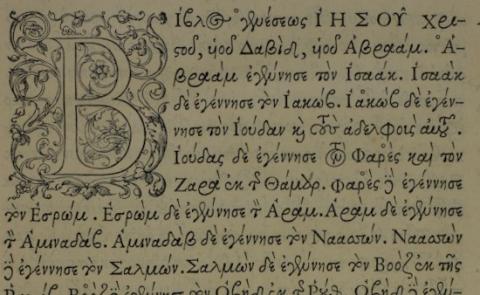 Βίβλος γενέσεως ΙΗΣΟΥ Χρι-
στοῦ, υἱοῦ Δαβὶδ, υἱοῦ Ἀβραάμ. Ἀ-
βραὰμ ἐγέννησε τὸν Ισαάκ. Ισαὰκ
δὲ ἐγέννησε τὸν Ιακώβ. Ιακὼβ δὲ ἐγέν-
νησε τὸν Ιούδαν καὶ τοὺς ἀδελφοὺς αὐτοῦ.
Ιούδας δὲ ἐγέννησε τὸν Φαρὲς καὶ τὸν
Ζαρὰ ἐκ τῆς Θάμαρ. Φαρὲς δὲ ἐγέννησε
τὸν Εσρώμ. Εσρὼμ δὲ ἐγέννησε τὸν Αράμ. Αρὰμ δὲ ἐγέννησε
τὸν Αμιναδάβ. Αμιναδὰβ δὲ ἐγέννησε τὸν Ναασσών. Ναασσὼν
δὲ ἐγέννησε τὸν Σαλμών. Σαλμὼν δὲ ἐγέννησε τὸν Βοὸζ ἐκ τῆς